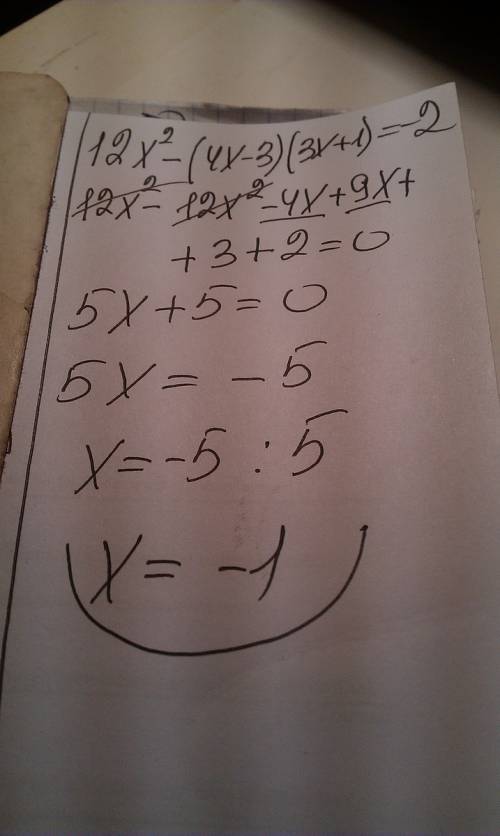 12x² - (4x-3)(3x+1) = -2
12x² - 12x² - 4x + 9x +
+ 3 + 2 = 0
5x + 5 = 0
5x = - 5
x = -5 : 5
x = - 1